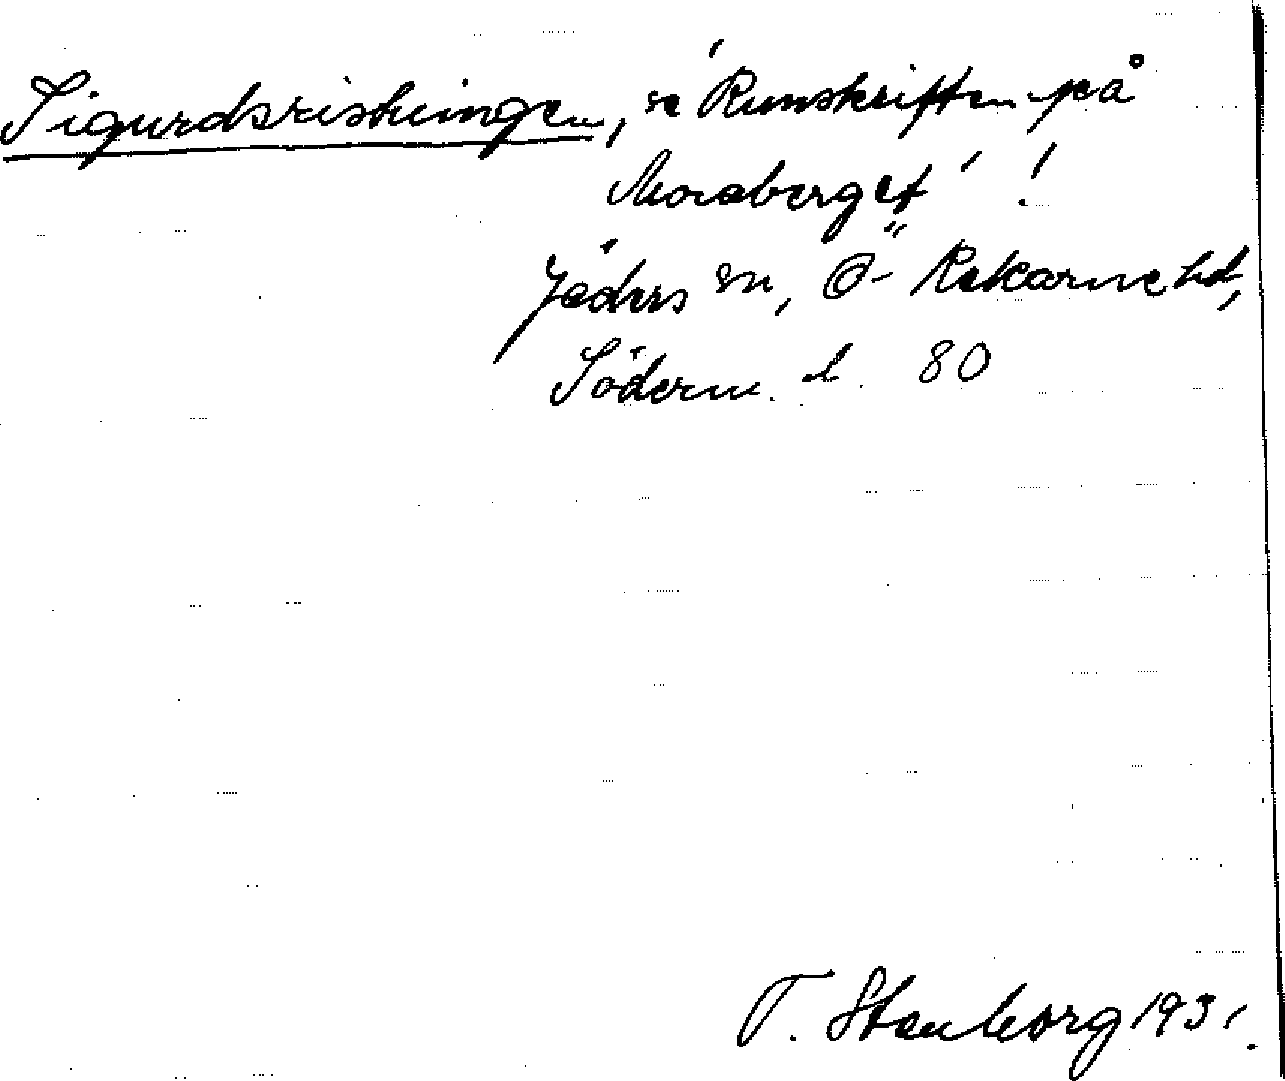 Sigurdsristningen, se 'Runskriften på
Moraberget'!
Jäders sn, Ö- Rekarne hd,
Söderm. l. 80
T. Stenborg 1931.